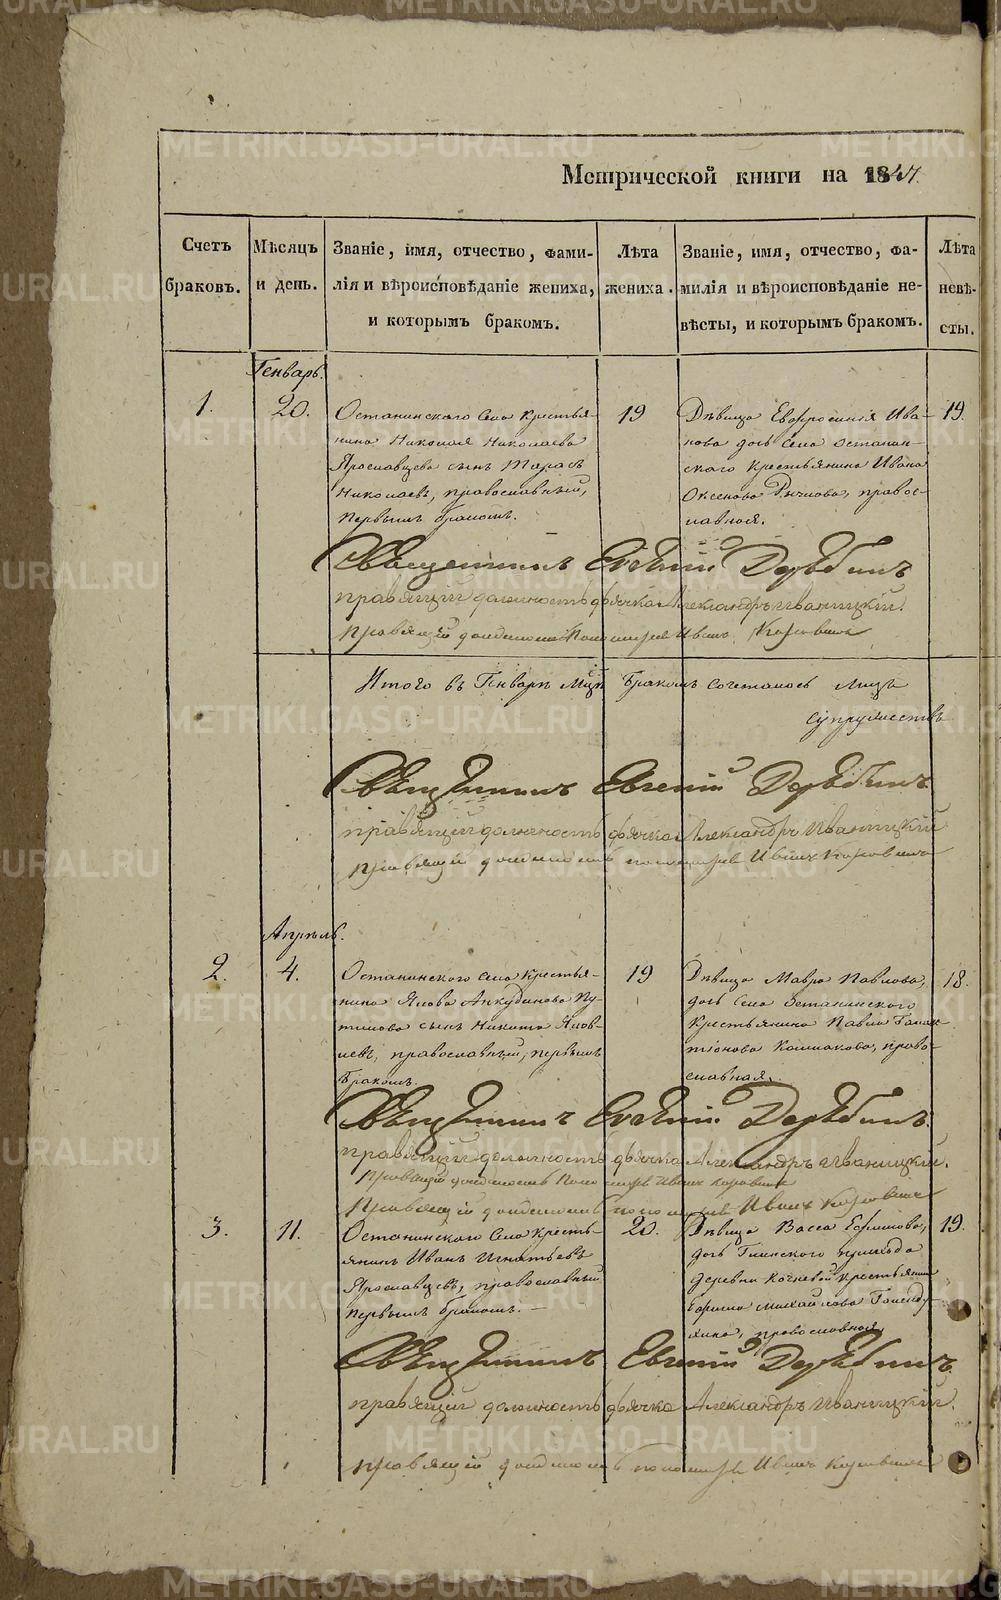 Метрической книги на 1847.
Счетъ браковъ.
Мѣсяцъ и день.
Званіе, имя, отчество, фами-
лія и вѣроисповѣданіе жениха,
и которымъ бракомъ.
Лѣта
жениха.
Званіе, имя, отчество, фа-
милія и вѣроисповѣданіе не-
вѣсты, и которымъ бракомъ.
Лѣта
невѣ-
сты.
Генварь.
1.
20.
Останинскаго Села крестья-
нина Николая Николаева
Ярославцева сынъ Тарасъ
Николаевъ, православный,
первымъ бракомъ.
19
Дѣвица Евфросинія Ива-
нова дочь Села Останин-
скаго крестьянина Ивана
православ-
ная.
19.
Священникъ Евгеній Дерябинъ
правящій должность дьячка Александръ Иваницкій.
Правящій должность Пономаря Иванъ Коровинъ
Итого въ Генварѣ Мцѣ бракомъ сочеталось лицъ
супружествъ
Священникъ Евгеній Дерябинъ
правящій должность дьячка Александръ Иваницкій
правящій должность пономаря Иванъ Коровинъ
Апрѣль.
2.
4.
Останинскаго Села крестья-
нина Якова Анкудинова Пу-
тилова сынъ Никита Яков-
левъ, православный, первымъ
бракомъ.
19
Дѣвица Мавра Павлова,
дочь Села Останинскаго
крестьянина Павла Галак-
тіонова Колмакова, право-
славная.
18.
Священникъ Евгеній Дерябинъ.
правящій должность дьячка Александръ Иваницкій.
Правящій должность Пономаря Иванъ Коровинъ
Правящій должность пономаря Иванъ Коровинъ
3.
11.
Останинскаго Села Кресть-
янинъ Иванъ Игнатьевъ
Ярославцевъ, православный
первымъ бракомъ.
20.
Дѣвица Васса Ефимова,
дочь Глинскаго прихода
деревни Кочневой крестьянина
Ефима Михайлова
православная,
19.
Священникъ Евгеній Дерябинъ.
правящій должность дьячка Александръ Иваницкій.
правящій должность пономаря Иванъ Коровинъ
METRIKI.GASO-URAL.RU